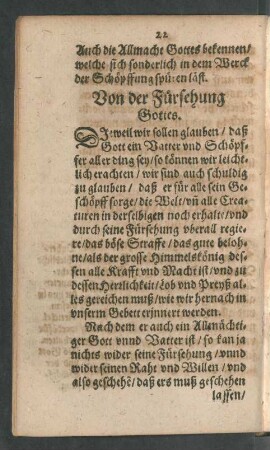 22
Auch die Allmache Gottes bekennen/
welche sich sonderlich in dem Werck
der Schöpffung spüren läst.
Von der Fürsehung
Gottes.
DJeweil wir sollen glauben / daß
Gott ein Vatter vnd Schöpf-
fer aller ding sey/so können wir leicht-
lich erachten / wir sind auch schuldig
zu glauben / daß er für alle sein Ge-
schöpff sorge/die Welt/vñ alle Crea-
turen in derselbigen noch erhalte/vnd
durch seine Fürsehung vberall regie-
re/das böse Straffe / das gute beloh-
ne/als der grosse Himmelskönig des-
sen alle Krafft vnd Macht ist/vnd zu
dessen Herrlichkeit/Lob vnd Preyß al-
les gereichen muß/wie wir hernach in
vnserm Gebett erjnnert werden.
Nach dem er auch ein Allmächti-
ger Gott vnnd Vatter ist/ so kan ja
nichts wider seine Fürsehung / vnnd
wider seinen Raht vnd Willen / vnd
also geschehẽ/ daß ers muß geschehen
lassen/